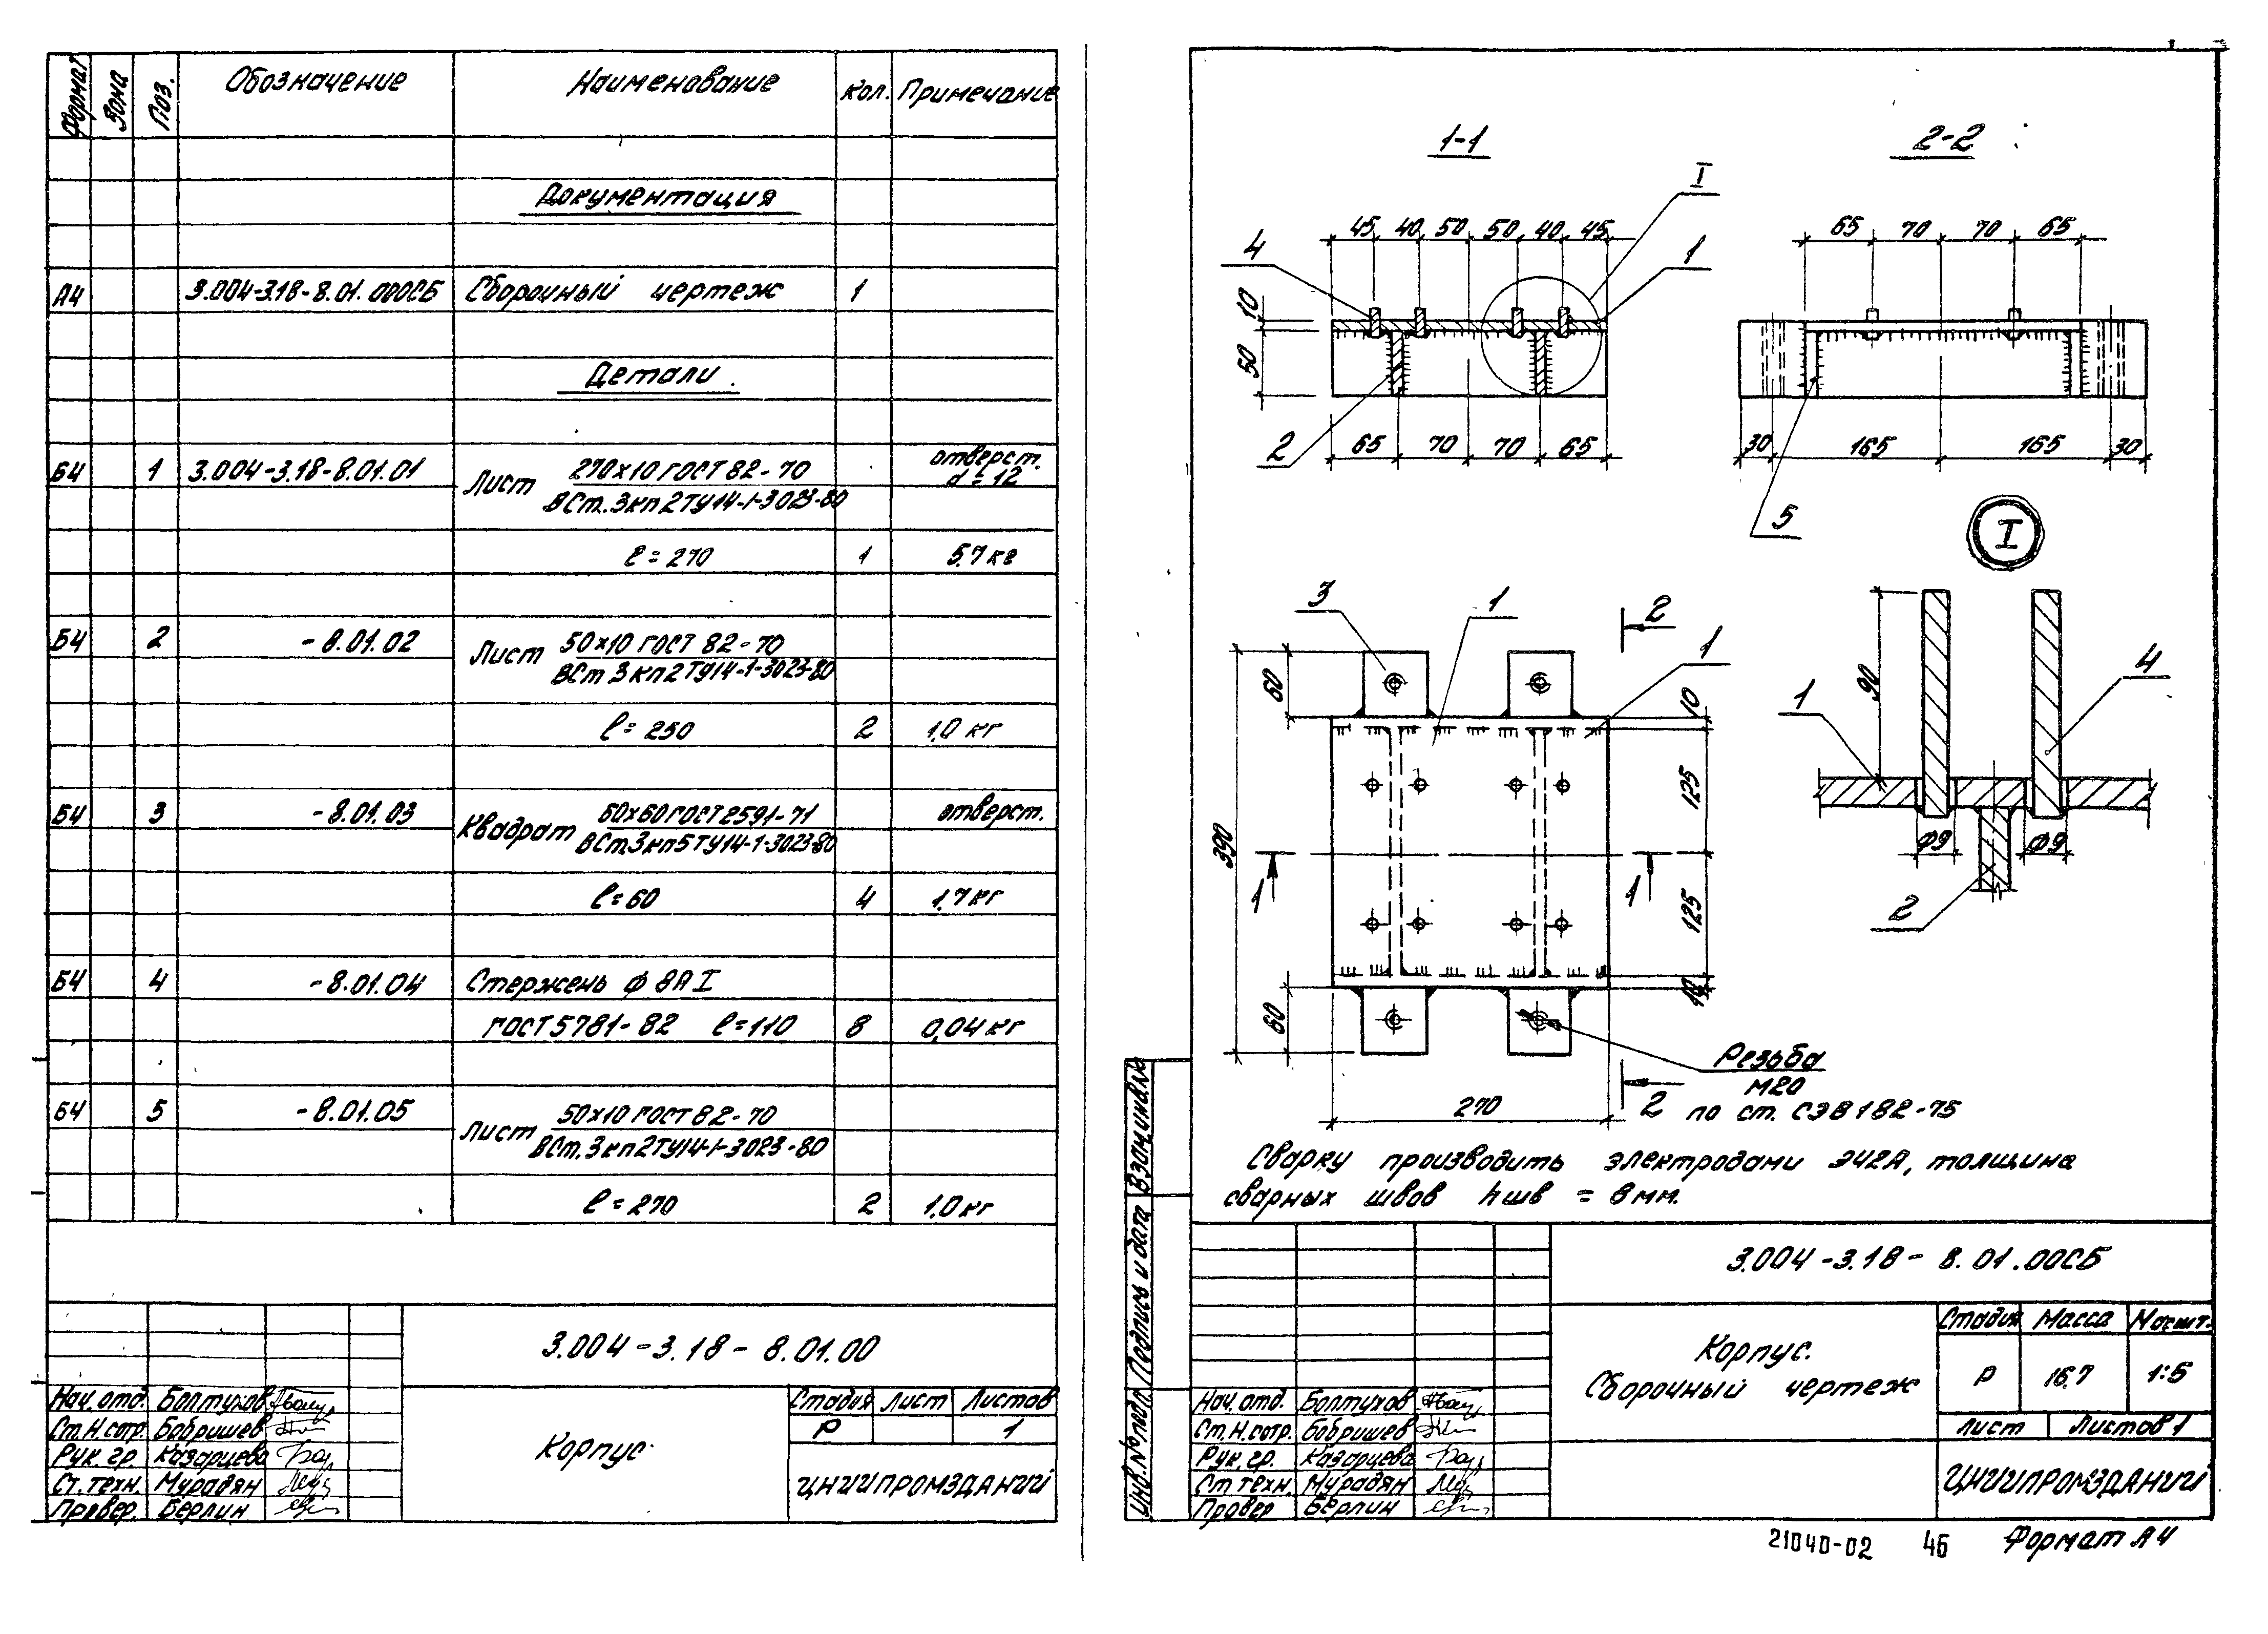 Формат Зона Поз. Обозначение Наименование Кол. Примечание
Документация
А4 3.004-3.18-8.01.000СБ Сборочный чертеж 1
Детали.
Б4 1 3.004-3.18-8.01.01 Лист 270х10 ГОСТ 82-70 отверст.
ВСт.3кп2ТУ14-1-3023-80 d=12
ℓ=270 1 5.7 кг
Б4 2 -8.01.02 Лист 50х10 ГОСТ 82-70
ВСт 3кп2ТУ14-1-3023-80
ℓ=250 2 1.0 кг
Б4 3 -8.01.03 Квадрат 60х60 ГОСТ 2591-71 отверст.
ВСт.3кп5ТУ14-1-3023-80
ℓ=60 4 1,7 кг
Б4 4 -8.01.04 Стержень ф 8А I
ГОСТ 5781-82 ℓ=110 8 0,04 кг
Б4 5 -8.01.05 Лист 50х10 ГОСТ 82-70
ВСт.3кп2ТУ14-1-3023-80
ℓ=270 2 1.0 кг
3.004-3.18-8.01.00
Нач. отд. Болтухов
Ст.Н.сотр. Бобришев
Рук. гр. Казарцева
Ст. техн. Мурадян
Провер. Берлин
Корпус
Стадия Лист Листов
Р 1
ЦНИИПРОМЗДАНИЙ
1-1
2-2
I
45 40 50 50 40 45
4
1
10
50
2
65 70 70 65
65 70 70 65
30 165 165 30
5
I
3
1
2
1
60
390
60
10
125
125
10
1
1
270
2
Резьба
М20
по ст. СЭВ 182-75
90
4
1
ф9 ф9
2
Сварку производить электродами Э42А, толщина
сварных швов hшв = 8 мм.
Взам.инв.№
Подпись и дата
Инв.№ подл.
3.004-3.18-8.01.00СБ
Корпус.
Сборочный чертеж
Стадия Масса Масшт.
Р 16.7 1:5
Лист Листов 1
ЦНИИПРОМЗДАНИЙ
Нач. отд. Болтухов
Ст.Н.сотр. Бобришев
Рук. гр. Казарцева
Ст техн. Мурадян
Провер Берлин
21040-02 46 Формат А4